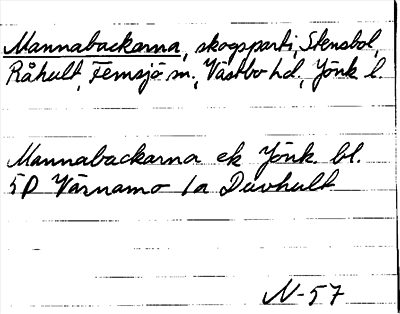 Mannabackarna, skogsparti, Stensbol,
Råhult, Femsjö sn., Västbo hd., Jönk l.
Mannabackarna ek Jönk bl.
5D Värnamo 1a Duvhult
N-57